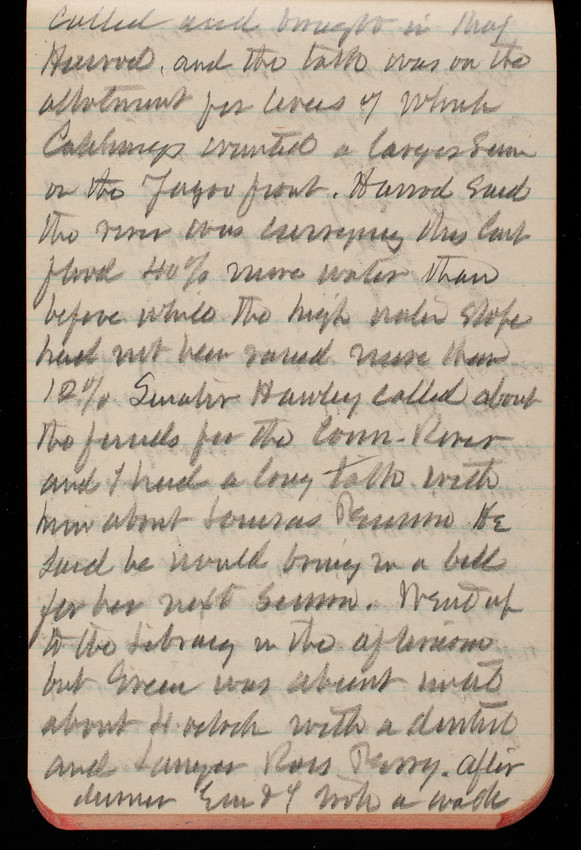 called and brought in Maj
Harrod, and the talk was on the
allotment for levees of which
Catchings wanted a larger sum
on the Yazoo front. Harrod said
the river was carrying this last
flood 40% more water than
before while the high water slope
had not been raised more than
12%. Senator Hawley called about
the funds for the Conn. River
and I had a long talk with
him about Louisas Pension. He
said he would bring in a bill
for her next Session. Went up
to the Library in the afternoon
but Green was absent until
about 4 oclock with a dentist
and Lawyer Ross Perry. After
dinner Em & I took a walk